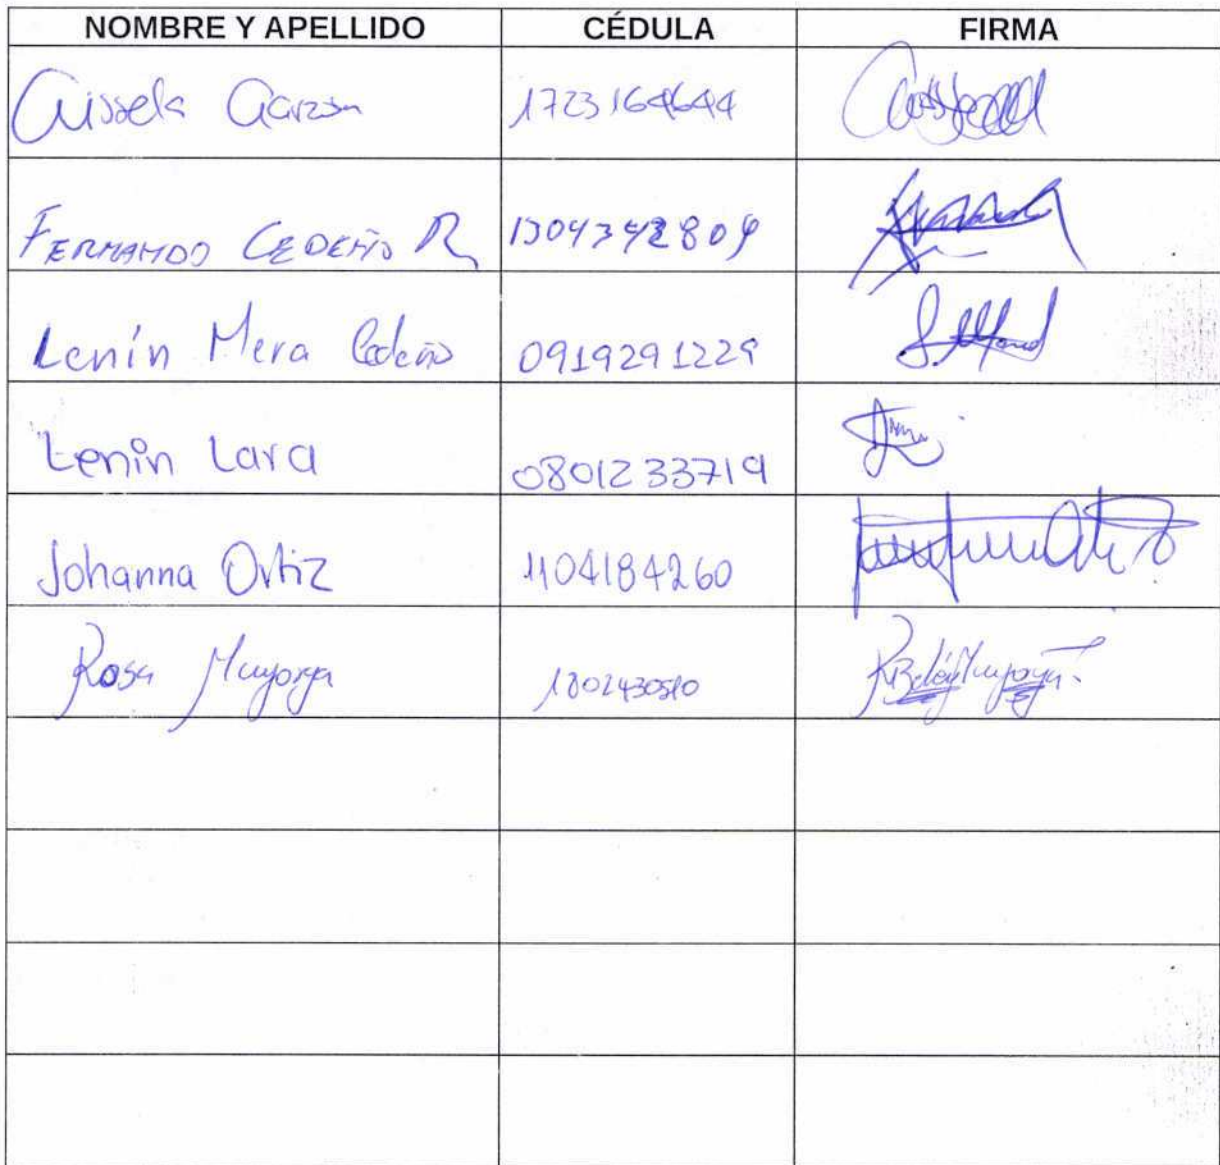 NOMBRE Y APELLIDO CÉDULA FIRMA
Gissela Garzon 1723164644
FERNANDO CEDEÑO R 1304342809
Lenín Mera Cedeño 0919291229
Lenin Lara 0801233719
Johanna Ortiz 1104184260
Rosa Mayorga 1802430510